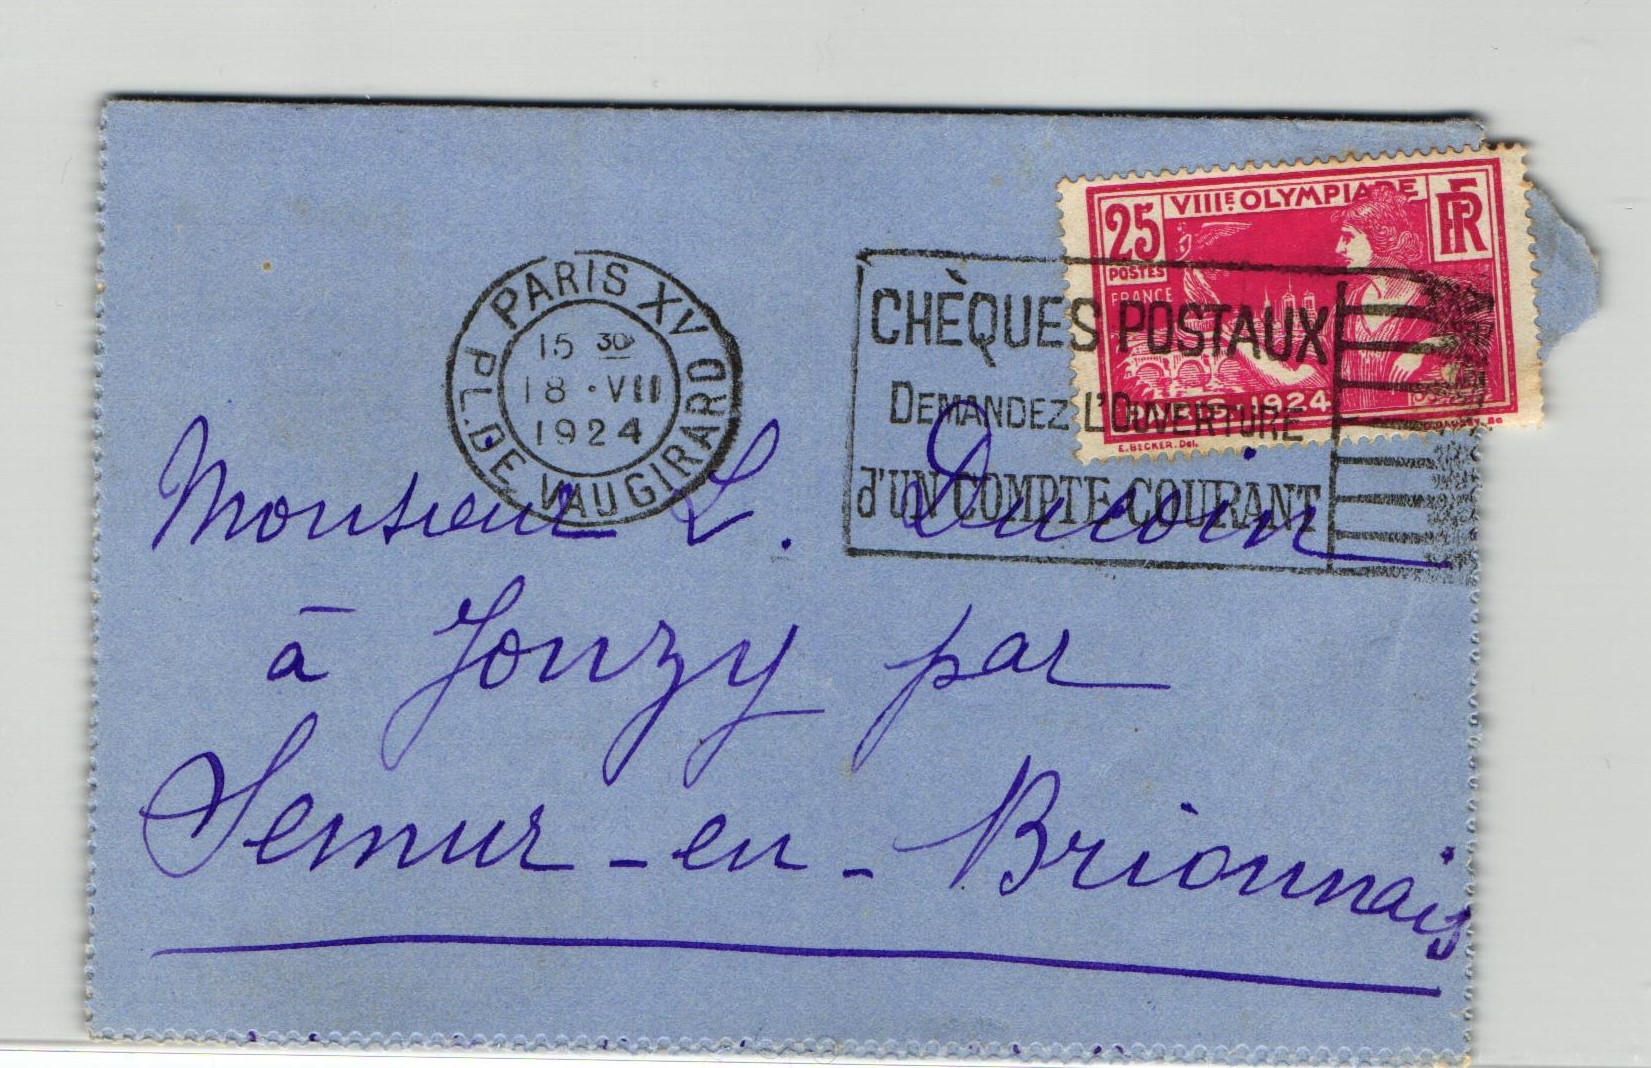 VIIIE OLYMPIADE
25 RF
POSTES
FRANCE
PARIS 1924
E. BECKER. Del.
PARIS XV D
PL. DE VAUGIRARD
15 30
18 · VII
1924
CHÈQUES POSTAUX
DEMANDEZ L'OUVERTURE
d'UN COMPTE COURANT
Monsieur L. Ducoin
à Jonzy par
Semur-en-Brionnais